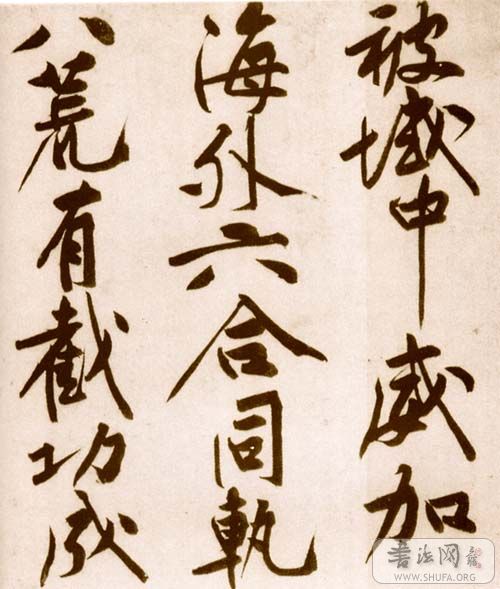 被域中威加
海外六合同軌
八荒有截功成
書法网
WWW.SHUFA.ORG